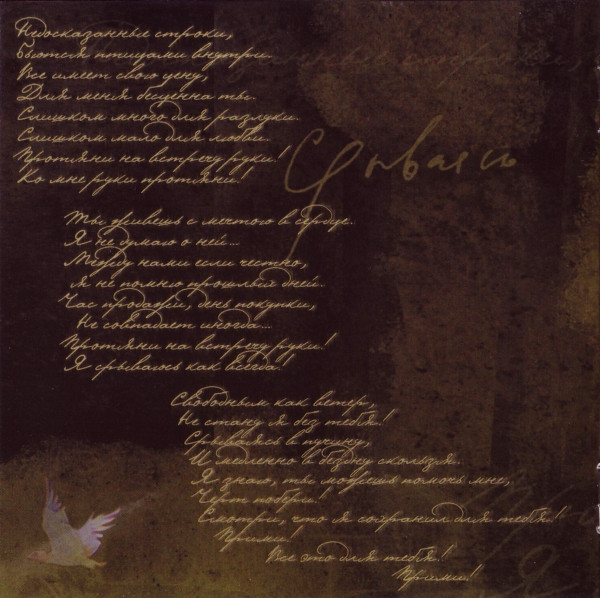 Недосказанные строки,
Бьются птицами внутри.
Все имеет свою цену,
Для меня бесценна ты.
Слишком много для разлуки.
Слишком мало для любви.
Протяни на встречу руки!
Ко мне руки протяни!
Срываясь
Ты живешь с мечтою в сердце.
Я не думаю о ней...
Между нами если честно,
Я не помню прошлых дней.
Час продажи, день покупки,
Не совпадает иногда...
Протяни на встречу руки!
Я срываюсь как всегда!
Свободным как ветер,
Не стану я без тебя!
Срываясь в пучину,
И медленно в бездну скользя.
Я знаю, ты можешь помочь мне,
Черт побери!
Смотри, что я сохранил для тебя!
Прими!
Все это для тебя!
Прими!